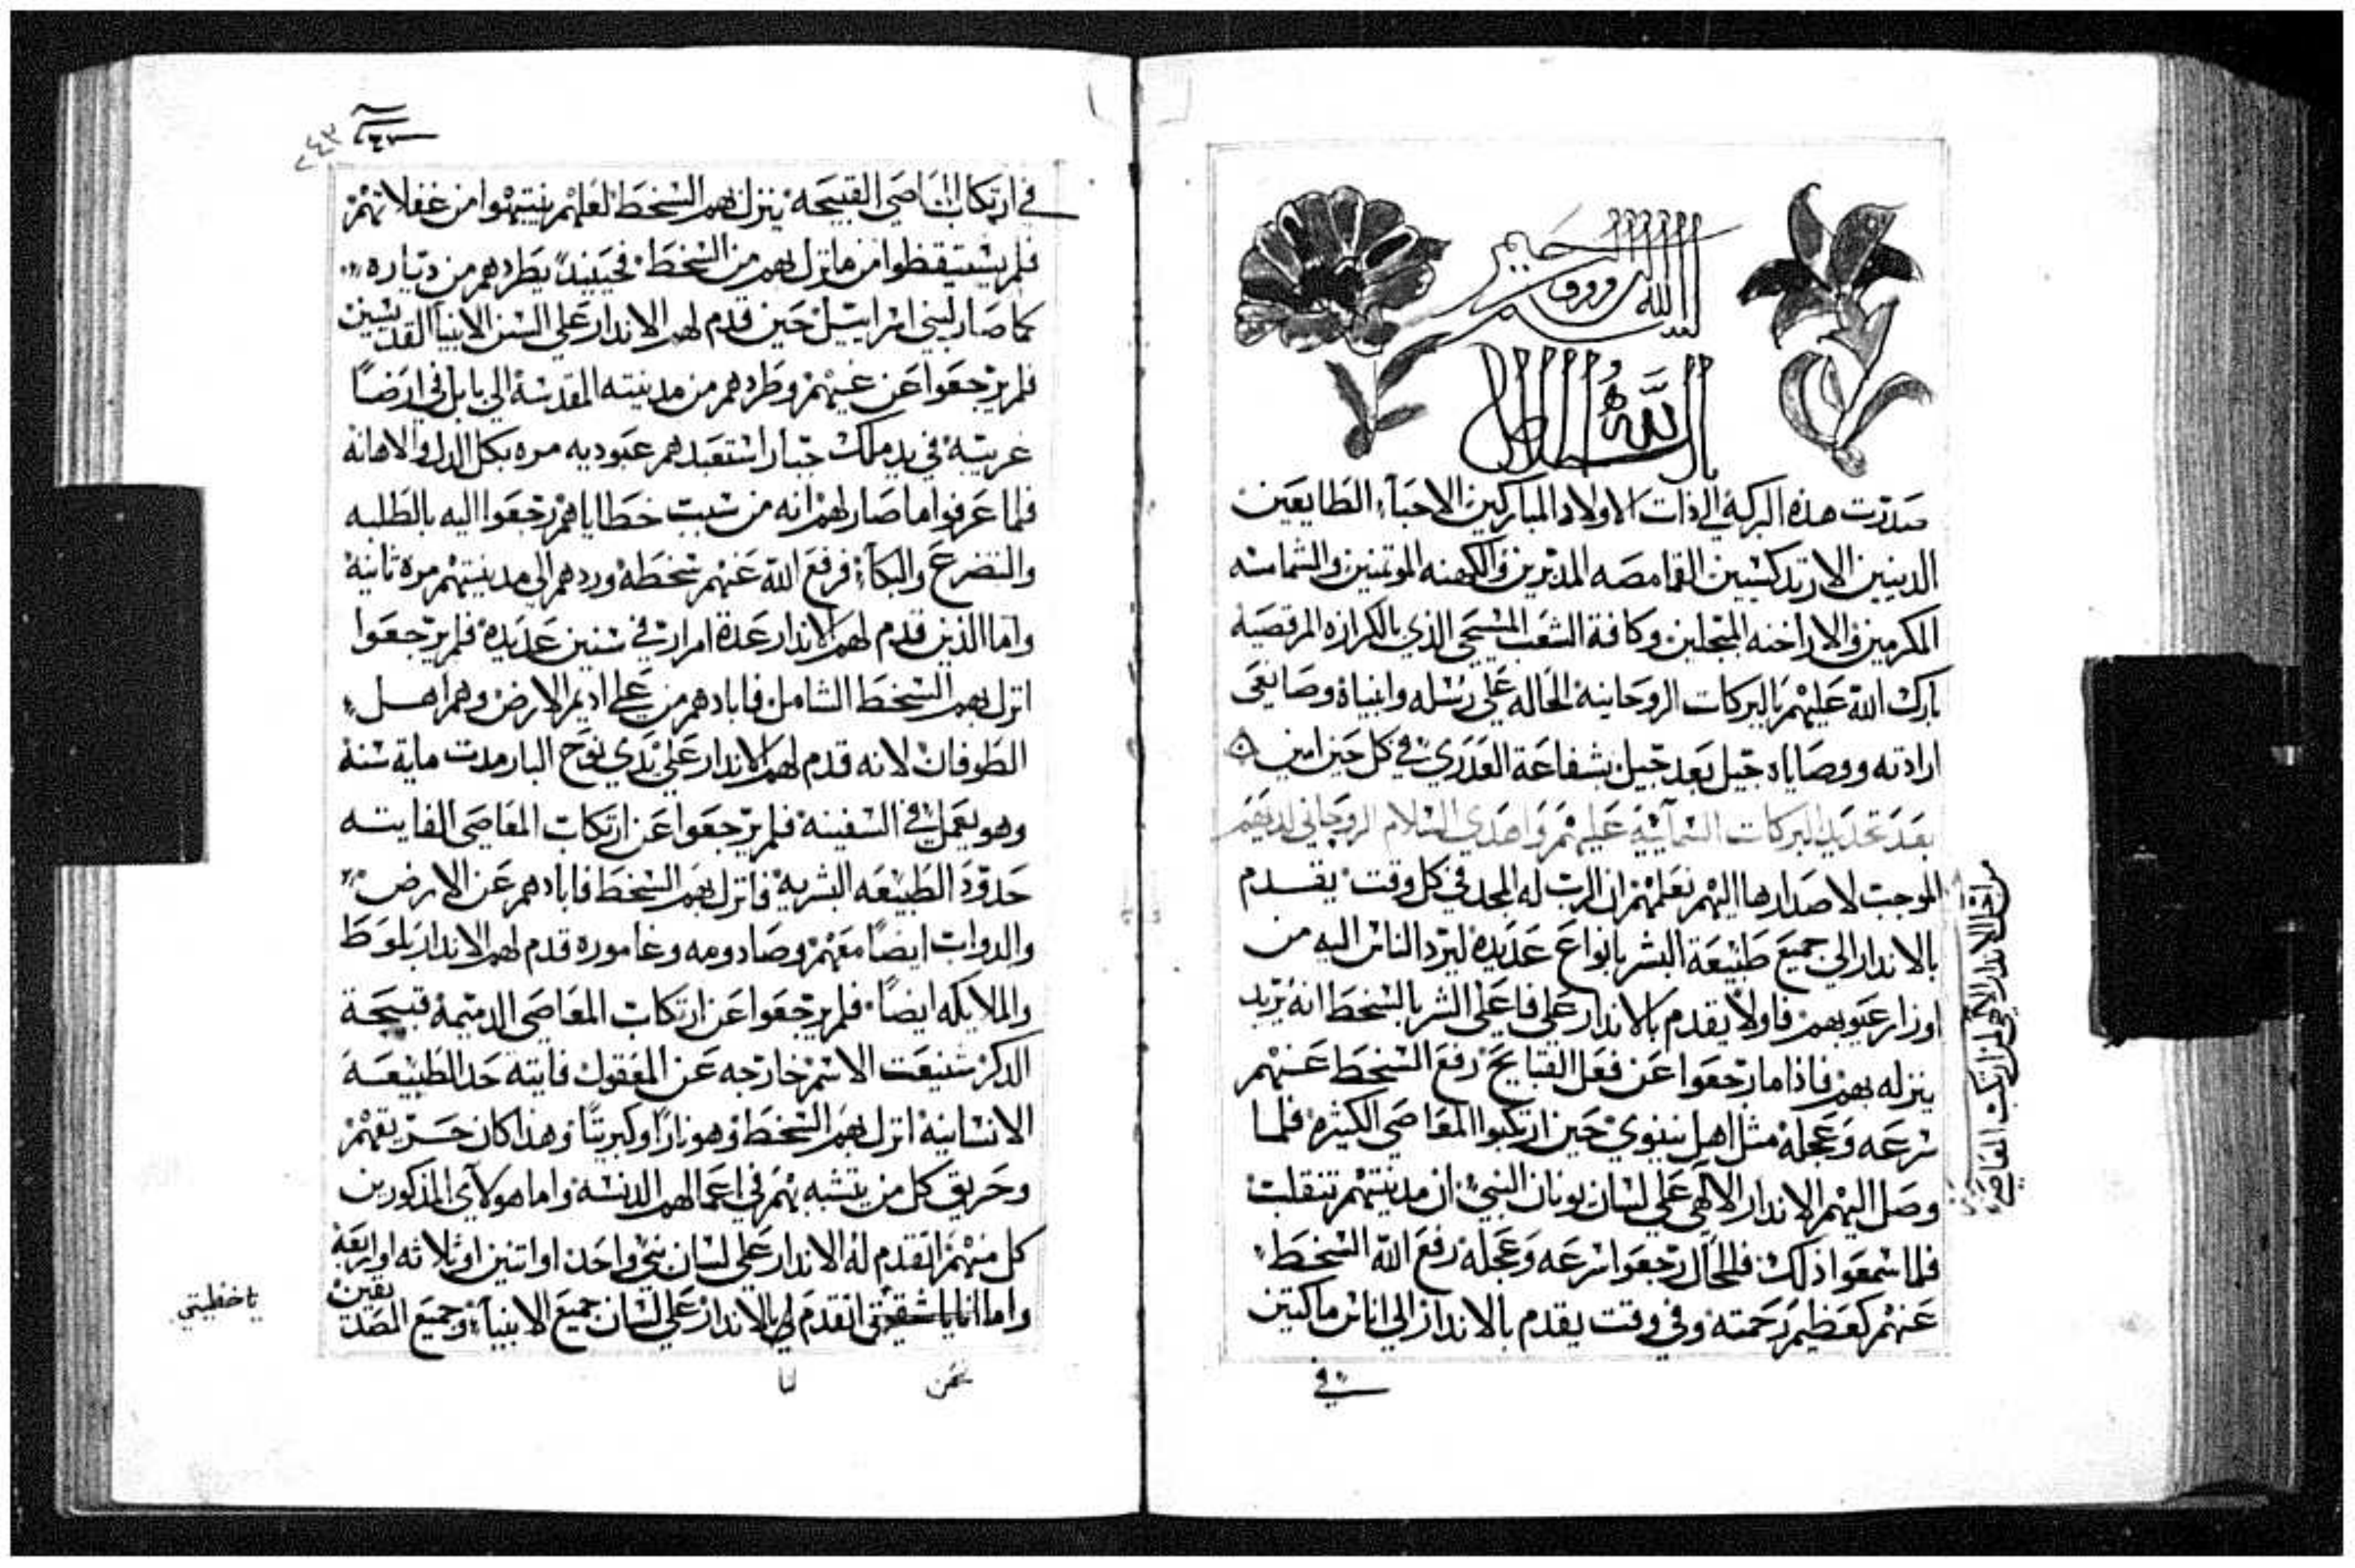 صدرت هذه البركة الي ذات الاولاد المباركين الاحباء الطايعين
الدينين الارتدكسيين القمامصه المدبرين والكهنه الموتمنين والشمامسه
المكرمين والاراخنه المبجلين وكافة الشعب المسيحي الذي بالكرازه المرقصيه
بارك الله عليهم بالبركات الروحانية الحاله علي رسله وانبياه وصانعي
ارادته ووصاياه جيل بعد جيل بشفاعة العدري في كل حين امين
بعد تجديد البركات السمآئية عليهم واهدي السلام الروحاني لديهم
الموجب لاصدارها اليهم نعلمهم ان الرب له المجد في كل وقت يقدم
بالاندار الي جميع طبيعة البشر بانواع عديدة ليرد الناس اليه من
اوزار عيوبهم فاولا يقدم بالاندار علي فاعلي الشر بالسخط انه يريد
ينزله بهم فاذا ما رجعوا عن فعل القبايح رفع السخط عنهم
سرعه وعجلة مثل اهل نينوي حين ارتكبوا المعاصي الكثيرة فلما
وصل اليهم الاندار الالهي علي لسان يونان النبي ان مدينتهم تنقلب
فلما سمعوا ذلك فللحال رجعوا سرعه وعجلة رفع الله السخط
عنهم كعظيم رحمته وفي وقت يقدم بالاندار الي اناس ماكتين
في
الاندار الالهي لمن ارتكب المعاصي
٢٤٣
في ارتكاب المعاصي القبيحة ينزل بهم السخط لعلهم ينتبهوا من غفلاتهم
فلم يستيقظوا من ما نزل بهم من السخط فحينيذ يطردهم من دياره
كما صار لبني اسراييل حين قدم لهم الاندار علي السن الانبيآ القديسين
فلم يرجعوا عن غيهم وطردهم من مدينته المقدسة الي بابل في ارضا
غريبة في يد ملك جبار استعبدهم عبوديه مره بكل الدل والاهانة
فلما عرفوا ما صار لهم انه من سبب خطاياهم رجعوا اليه بالطلبه
والتضرع والبكاء فرفع الله عنهم سخطة وردهم الي مدينتهم مرة ثانية
واما الذين قدم لهم الاندار عدة امرار في سنين عديدة فلم يرجعوا
انزل بهم السخط الشامل فابادهم من علي اديم الارض وهم اهل
الطوفان لانه قدم لهم الاندار علي يدي نوح البار مدت ماية سنة
وهو يعمل في السفينة فلم يرجعوا عن ارتكاب المعاصي الفايته
حدود الطبيعه البشرية فانزل بهم السخط فابادهم عن الارض
والدواب ايضا معهم وصادومه وغاموره قدم لهم الاندار بلوط
والملايكه ايضا فلم يرجعوا عن ارتكاب المعاصي الدميمة قبيحة
الدكر شنيعت الاسم خارجه عن المعقول فايته حد الطبيعة
الانسانية انزل بهم السخط وهو نارا وكبريتا وهذا كان حريقهم
وحريق كل من يتشبه بهم في اعمالهم الدنسة واما هولآي المذكورين
كل منهم اتقدم له الاندار علي لسان نبي واحد او اتنين او ثلاثه او اربعة
واما انا يا شقيق اتقدم لي بالاندار علي لسان جميع الانبيآء وجميع المصدقين
يا خطيتي
نحن
لنا